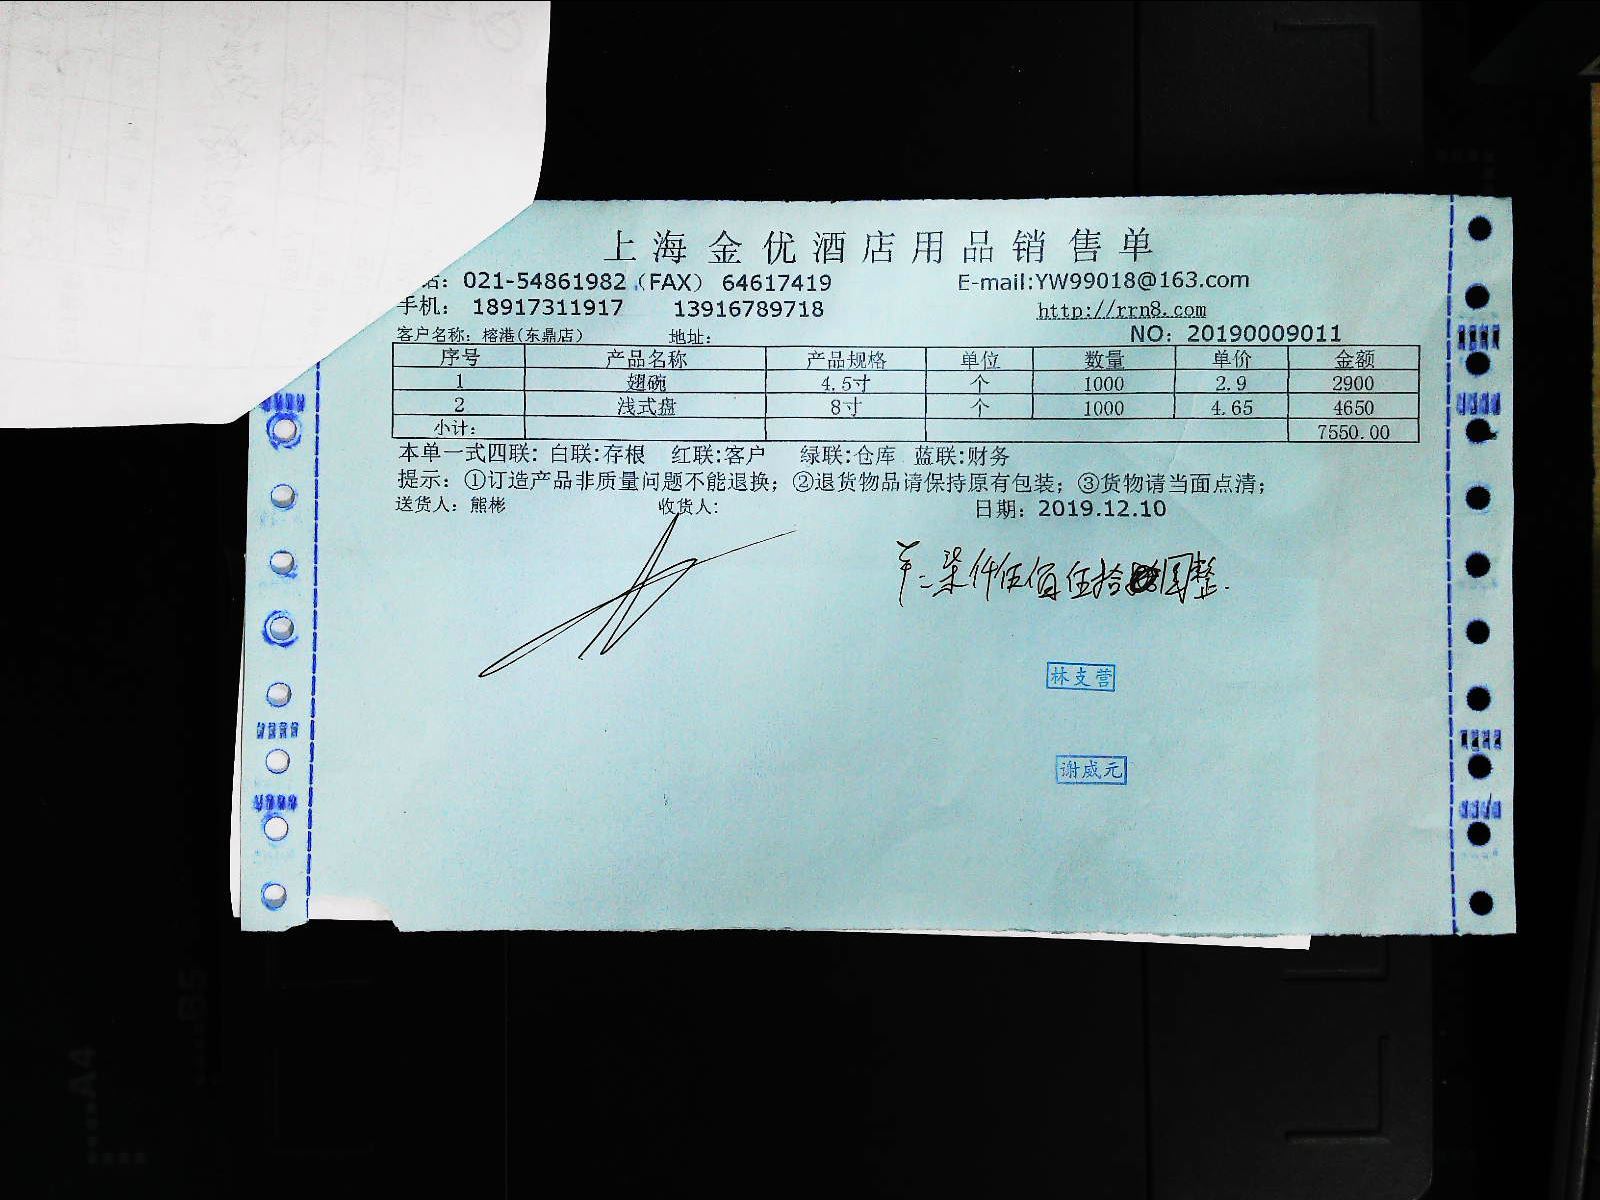 上海金优酒店用品销售单
话：021-54861982（FAX） 64617419 E-mail:YW99018@163.com
手机： 18917311917 13916789718 http://rrn8.com
客户名称：榕港(东鼎店) 地址： NO：20190009011
序号 产品名称 产品规格 单位 数量 单价 金额
1 翅碗 4.5寸 个 1000 2.9 2900
2 浅式盘 8寸 个 1000 4.65 4650
小计： 7550.00
本单一式四联：白联:存根 红联:客户 绿联:仓库 蓝联:财务
提示：①订造产品非质量问题不能退换；②退货物品请保持原有包装；③货物请当面点清；
送货人：熊彬 收货人： 日期：2019.12.10
柒仟伍佰伍拾圆整.
林支营
谢威元
B5
A4